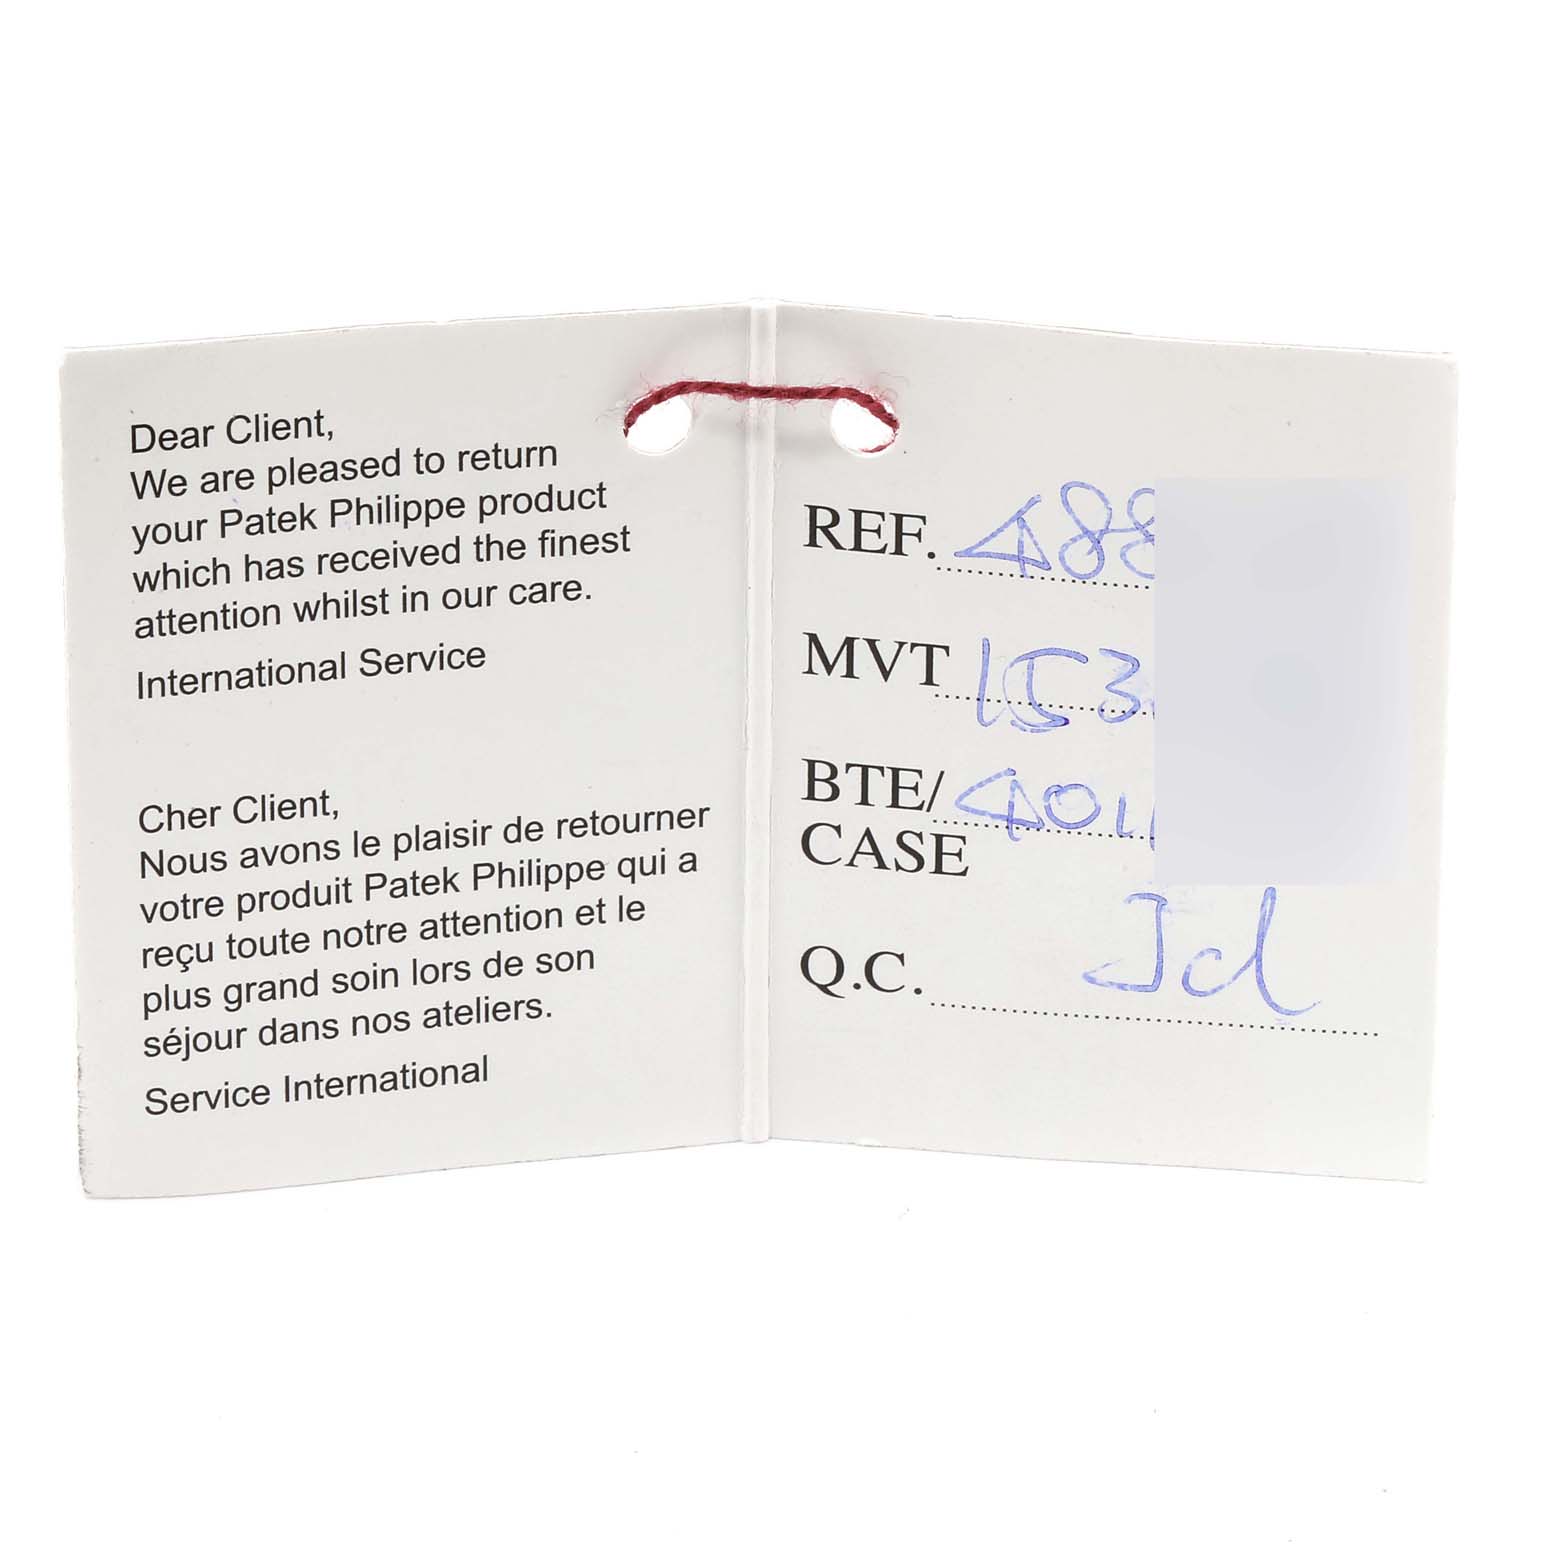 Dear Client,
We are pleased to return
your Patek Philippe product
which has received the finest
attention whilst in our care.
International Service
Cher Client,
Nous avons le plaisir de retourner
votre produit Patek Philippe qui a
reçu toute notre attention et le
plus grand soin lors de son
séjour dans nos ateliers.
Service International
REF. 488
MVT 153
BTE/ 401
CASE
Q.C.